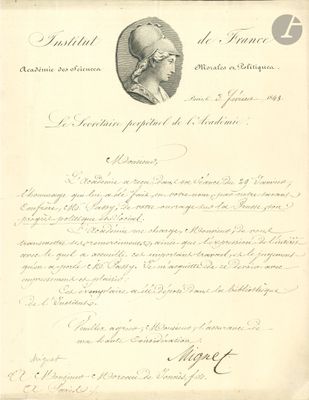 Institut de France
Académie des Sciences Morales et Politiques.
Paris le 3 février 1843
Le Secrétaire perpétuel de l'Académie
Monsieur,
L'Académie a reçu dans sa séance du 29 Janvier,
l'hommage qui lui a été fait en votre nom, par notre savant
Confrère, Mr Passy, de votre ouvrage sur la Prusse, son
progrès politique et social.
L'Académie me charge, Monsieur, de vous
transmettre ses remerciements, ainsi que l'expression de l'intérêt
avec lequel il a accueilli cet important travail, et le jugement
qu'en a porté Mr Passy. Je m'acquitte de ce devoir avec
empressement et plaisir.
Cet exemplaire a été déposé dans la bibliothèque
de l'Institut.
Veuillez agréer, Monsieur, l'assurance de
ma haute Considération.
Mignet
Mignet
A Monsieur Moreau de Jonnès fils.
A Paris